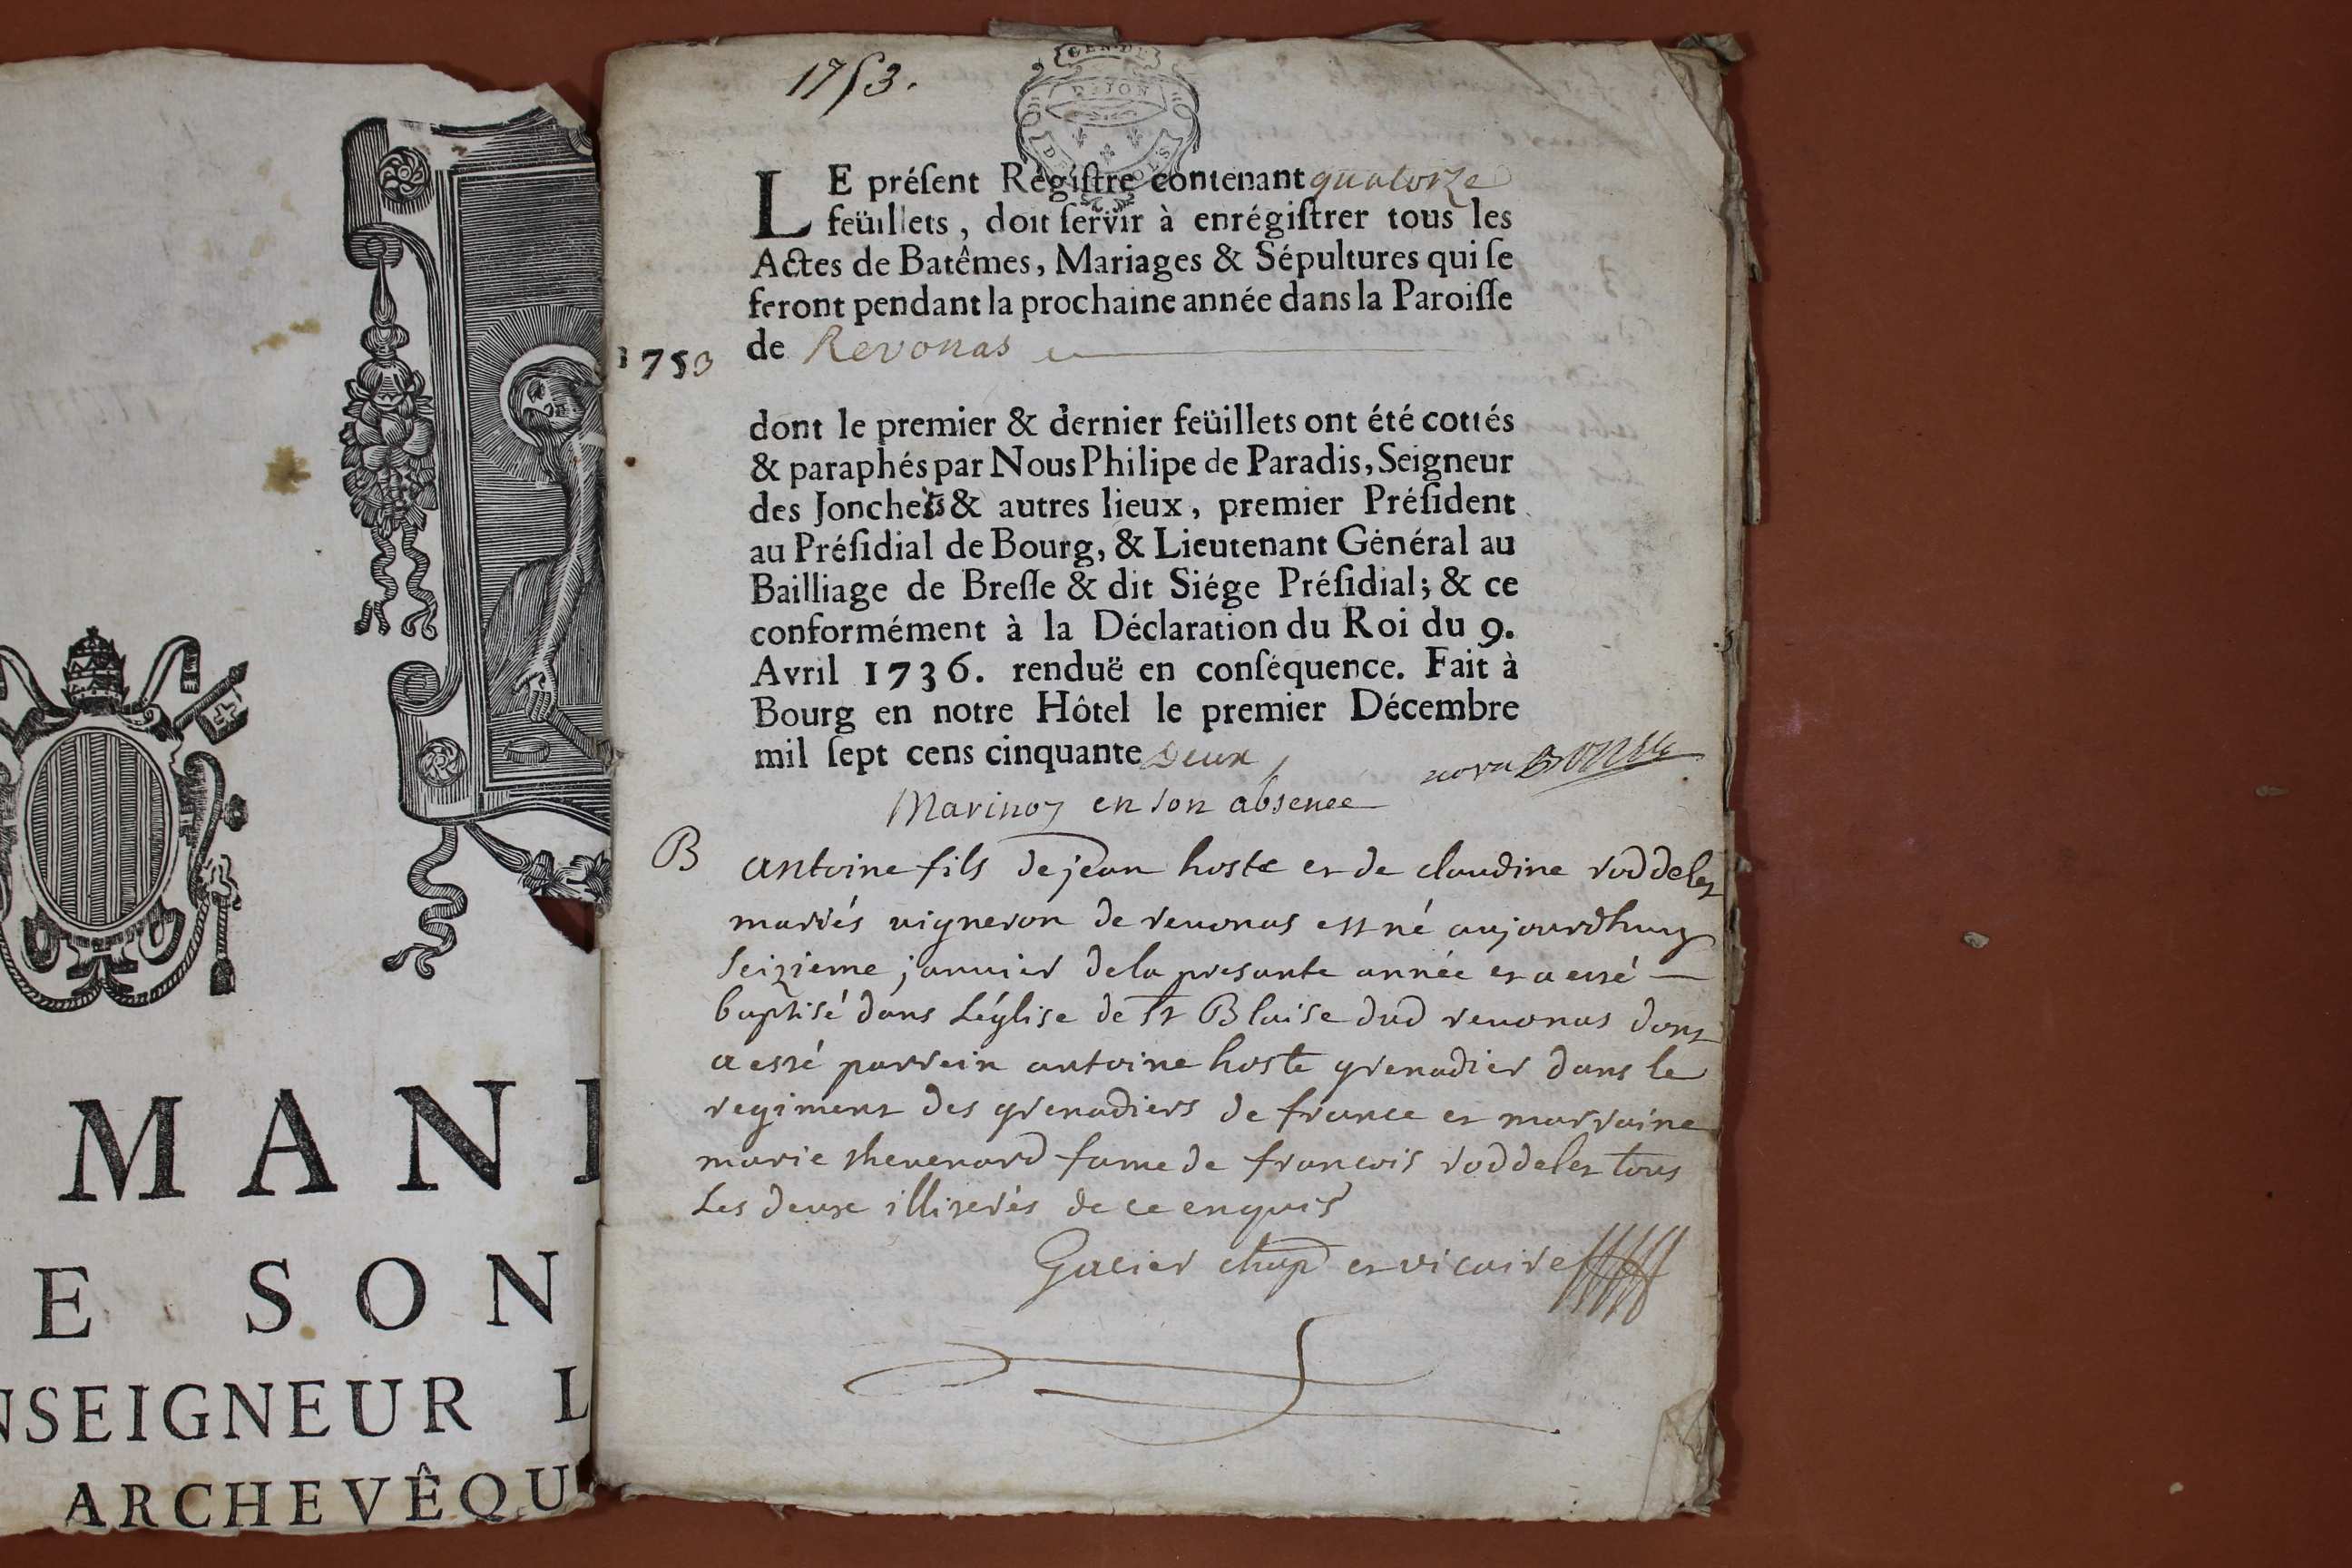 MAN
E SON
NSEIGNEUR L
ARCHEVÊQU
1753.
GEN. DE
DIJON
LE préſent Régiſtre contenant quatorze
feüillets, doit ſervir à enrégiſtrer tous les
Actes de Batêmes, Mariages & Sépultures qui ſe
feront pendant la prochaine année dans la Paroiſſe
1753 de Revonas
dont le premier & dernier feüillets ont été cottés
& paraphés par Nous Philipe de Paradis, Seigneur
des Jonche & autres lieux, premier Préſident
au Préſidial de Bourg, & Lieutenant Général au
Bailliage de Breſſe & dit Siége Préſidial; & ce
conformément à la Déclaration du Roi du 9.
Avril 1736. renduë en conſéquence. Fait à
Bourg en notre Hôtel le premier Décembre
mil ſept cens cinquante Deux
en son absence
B antoine fils de jean hoste et de claudine roddelet
mariés vigneron de revonas est né aujourdhuy
seizieme janvier de la presante année et a etté
baptisé dans L'église de st Blaise dud revonas dont
a etté parrein antoine hoste grenadier dans le
regiment des grenadiers de france et marraine
marie thevenard fame de francois roddelet tous
Les deux illiterés de ce enquis
chap et vicaire